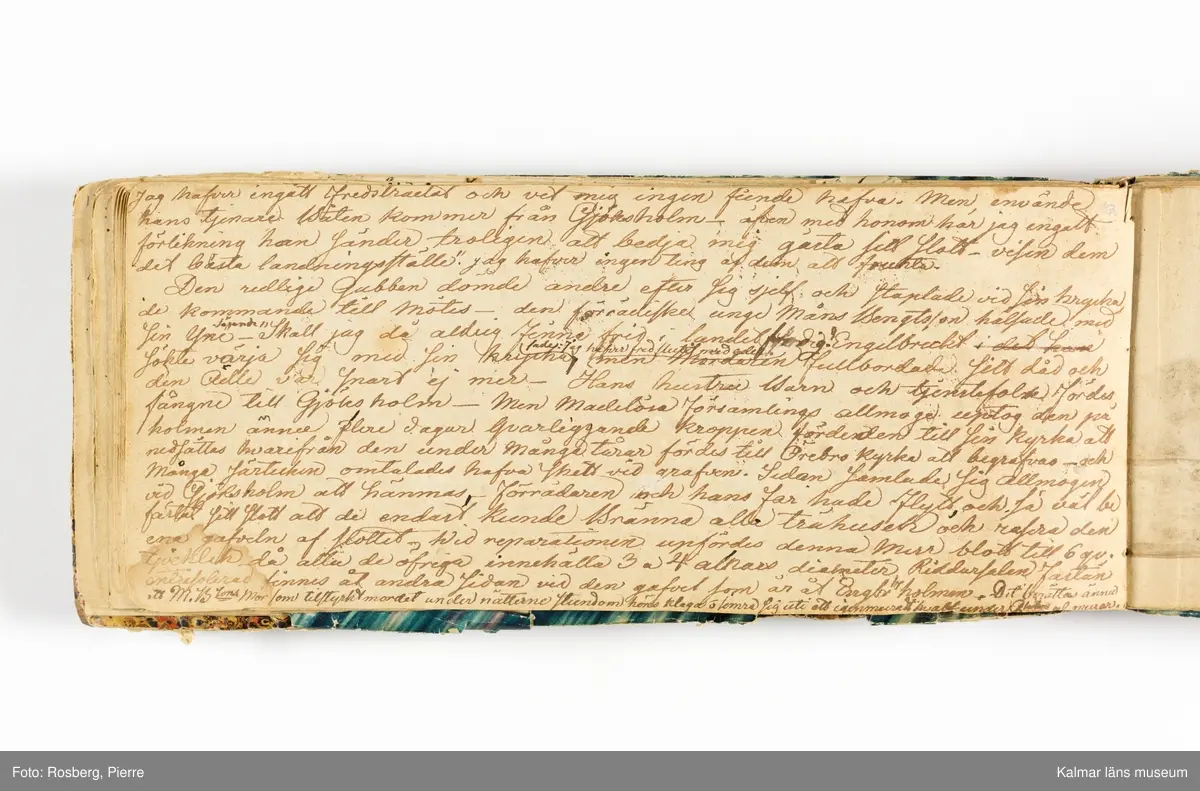 Jag hafver ingått Fredstractat och vet mig ingen fiende hafva. Men envände
hans tjenare Wäten kommer från Gjöksholm – äfven med honom har jag ingått
förlikning han sänder troligen att bedja mig gästa sitt slott – visen dem
det bästa landningsställe". jag hafver ingenting af dem att frukta.
Den redlige Gubben dömde andre efter sig sjelf. och staplade vid sin krycka
de kommande till mötes – den förrädiske unge Måns Bengtsson hälsade med
sin Yxe – Skall jag då aldrig finna frid i landet Engelbrecht i det han
sökte värja sig med sin krycka men Mordaren fullbordade sitt dåd och
den Ädle var snart ej mer – Hans hustru Barn och tjenstefolk fördes
fångne till Gjöksholm – Men Madelösa Församlings allmoge upptog den på
holmen ännu flere dagar qvarliggande kroppen förde den till sin kyrka att
nedsättas hvarifrån den under många tårar fördes till Örebro kyrka att begrafvas – och
många järtecken omtalades hafva skett vid grafven. Sedan samlade sig allmogen
vid Gjöksholm att hämnas, Förrädaren och hans far hade flytt och så väl be
fästat sitt slott att de endast kunde bränna alla trähusen och rasera den
ena gafveln af slottet – Wid reparationen upfördes denna Mur blott till 6 qv.
tjocklek då alla de öfriga innehålla 3 a 4 alnars diameter Riddarsalen fastän
finnes åt andra sidan vid den gafvel som är åt holmen. Det berättas ännu
att M. B sons Mor som tillstyrkt mordet under nätterne stundom höres klaga